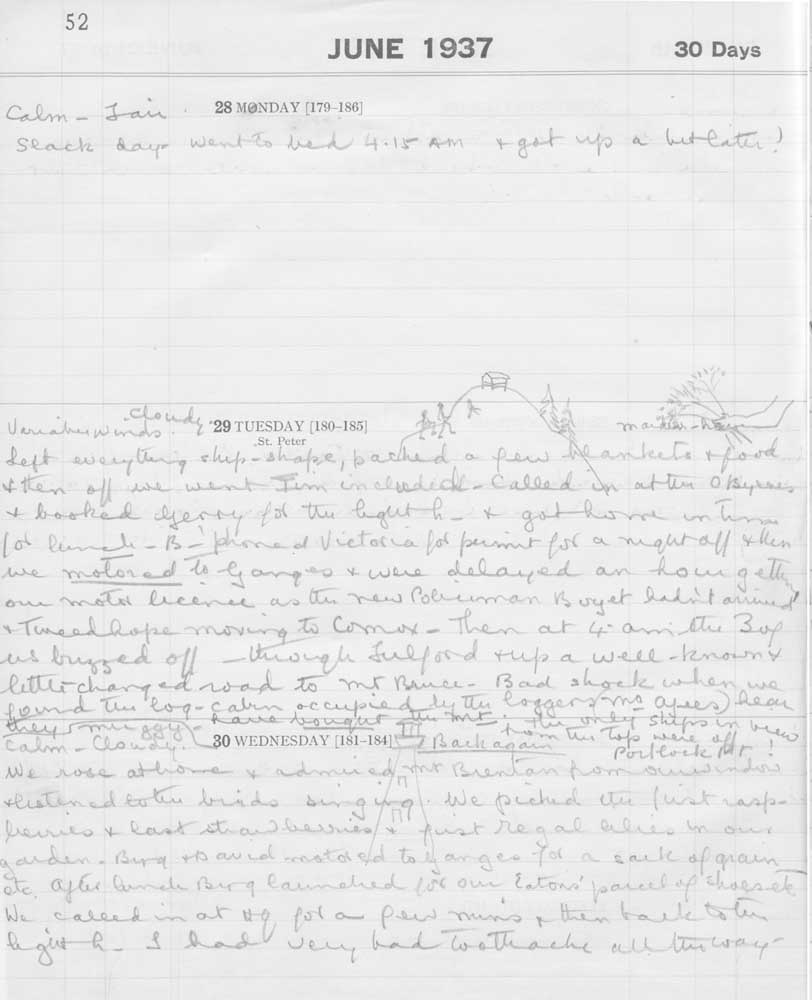 52
JUNE 1937 30 Days
28 MONDAY [179-186]
Calm - Fair
Slack day - went to bed 4.15 AM & got up a bit later!
Cloudy
Variable winds.
29 TUESDAY [180-185]
St. Peter
Left everything ship-shape, packed a few blankets & food
& then off we went Jim included - Called in at the O'Byrnes
& booked Gerry for the light h- & got home in time
for lunch - B- 'phoned Victoria for permit for a night off & then
we motored to Ganges & were delayed an hour getting
our motor licence as the new Policeman hadn't arrived
& Tweedhope moving to Comox - Then at 4- the 3 of
us buzzed off - through Fulford & up a well-known &
little changed road to Mt Bruce - Bad shock when we
found the log-cabin occupied by the loggers hear
they have bought the Mt. the only ships in view
from the top were off
Portlock Pt!
muggy
Calm - Cloudy.
30 WEDNESDAY [181-184]
Back again
We rose at home & admired Mt from our window
& listened to the birds singing. We picked the first rasp-
berries & last strawberries & first regal lilies in our
garden - & David motored to Ganges for a sack of grain
etc. After lunch launched for our Eatons' parcel of shoes etc
We called in at HQ for a few mins & then back to the
light h- I had very bad toothache all the way -